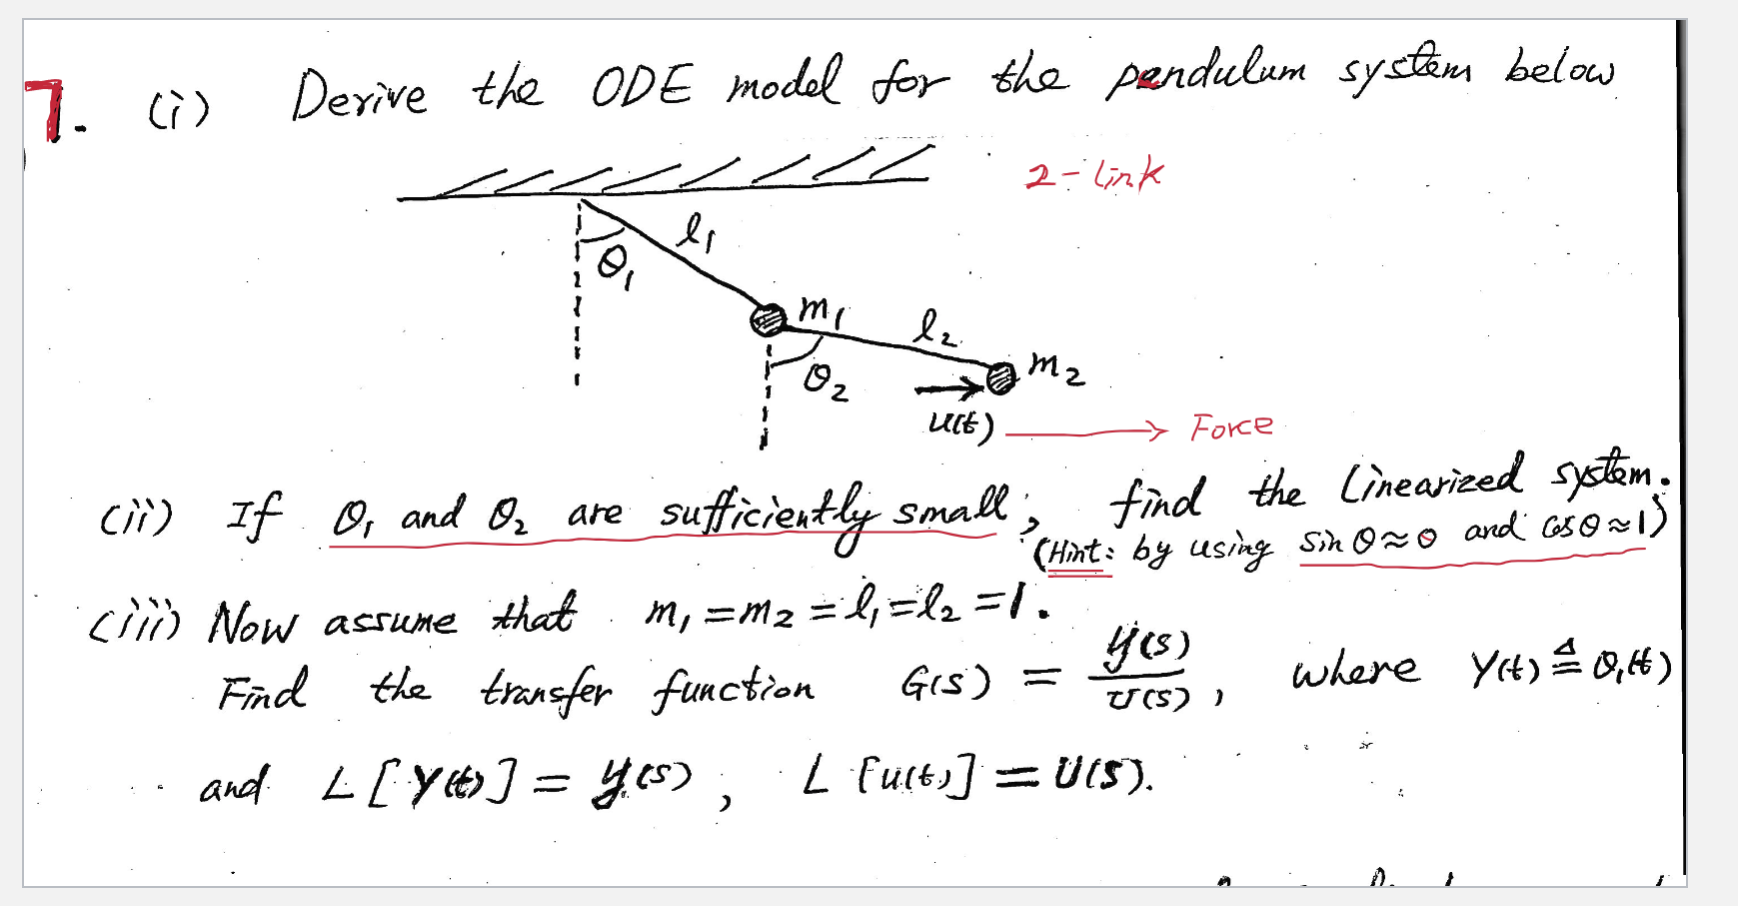 7. (i) Derive the ODE model for the pendulum system below
2-link
l1
θ1
m1
l2
m2
θ2
u(t) → Force
(ii) If θ1 and θ2 are sufficiently small, find the linearized system.
(Hint: by using sin θ ≈ θ and cos θ ≈ 1)
(iii) Now assume that m1 = m2 = l1 = l2 = 1.
Find the transfer function G(s) = y(s) / U(s), where y(t) ≜ θ1(t)
and L[y(t)] = y(s), L[u(t)] = U(s).